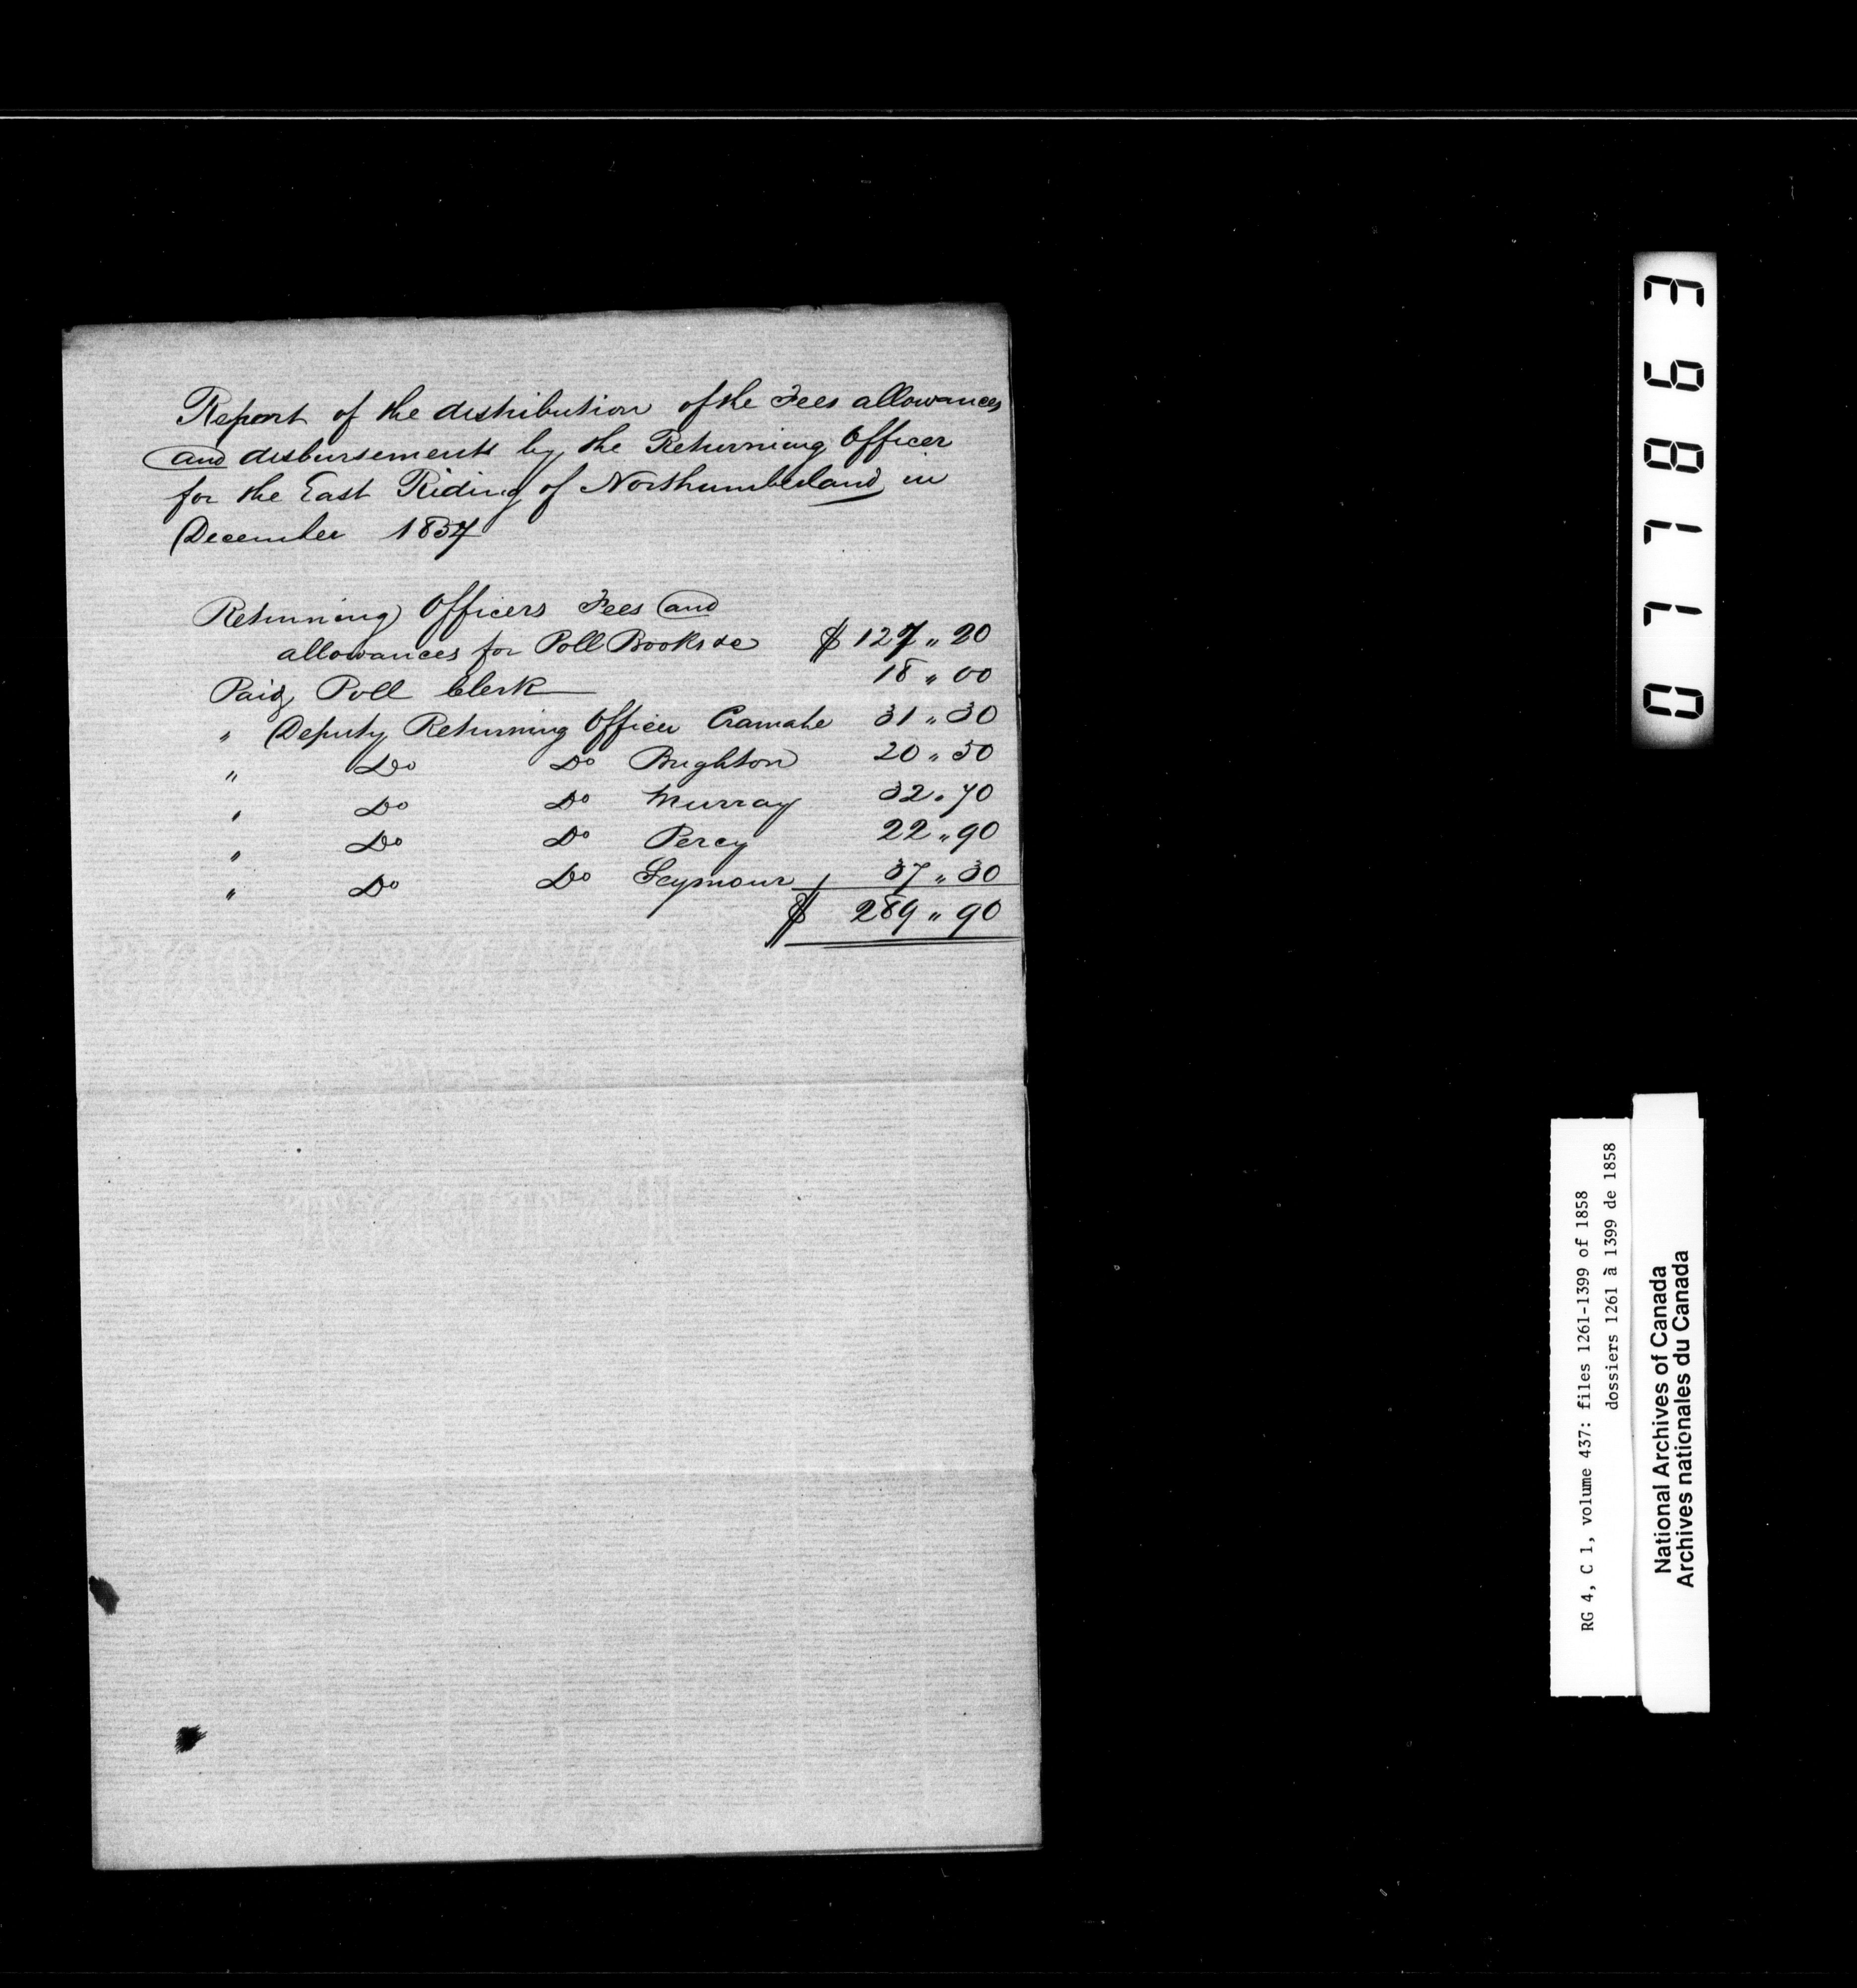 Report of the distribution of the Fees allowances
and disbursements by the Returning Officer
for the East Riding of Northumberland in
December 1857
Returning Officers Fees and
allowances for Poll Books &c $ 127 „ 20
Paid Poll Clerk 18 „ 00
„ Deputy Returning Officer Cramahe 31 „ 30
„ Do Do Brighton 20 „ 50
„ Do Do Murray 32 „ 70
„ Do Do Percy 22 „ 90
„ Do Do Seymour 37 „ 30
$ 289 „ 90
077863
RG 4, C 1, volume 437: files 1261-1399 of 1858
dossiers 1261 à 1399 de 1858
National Archives of Canada
Archives nationales du Canada